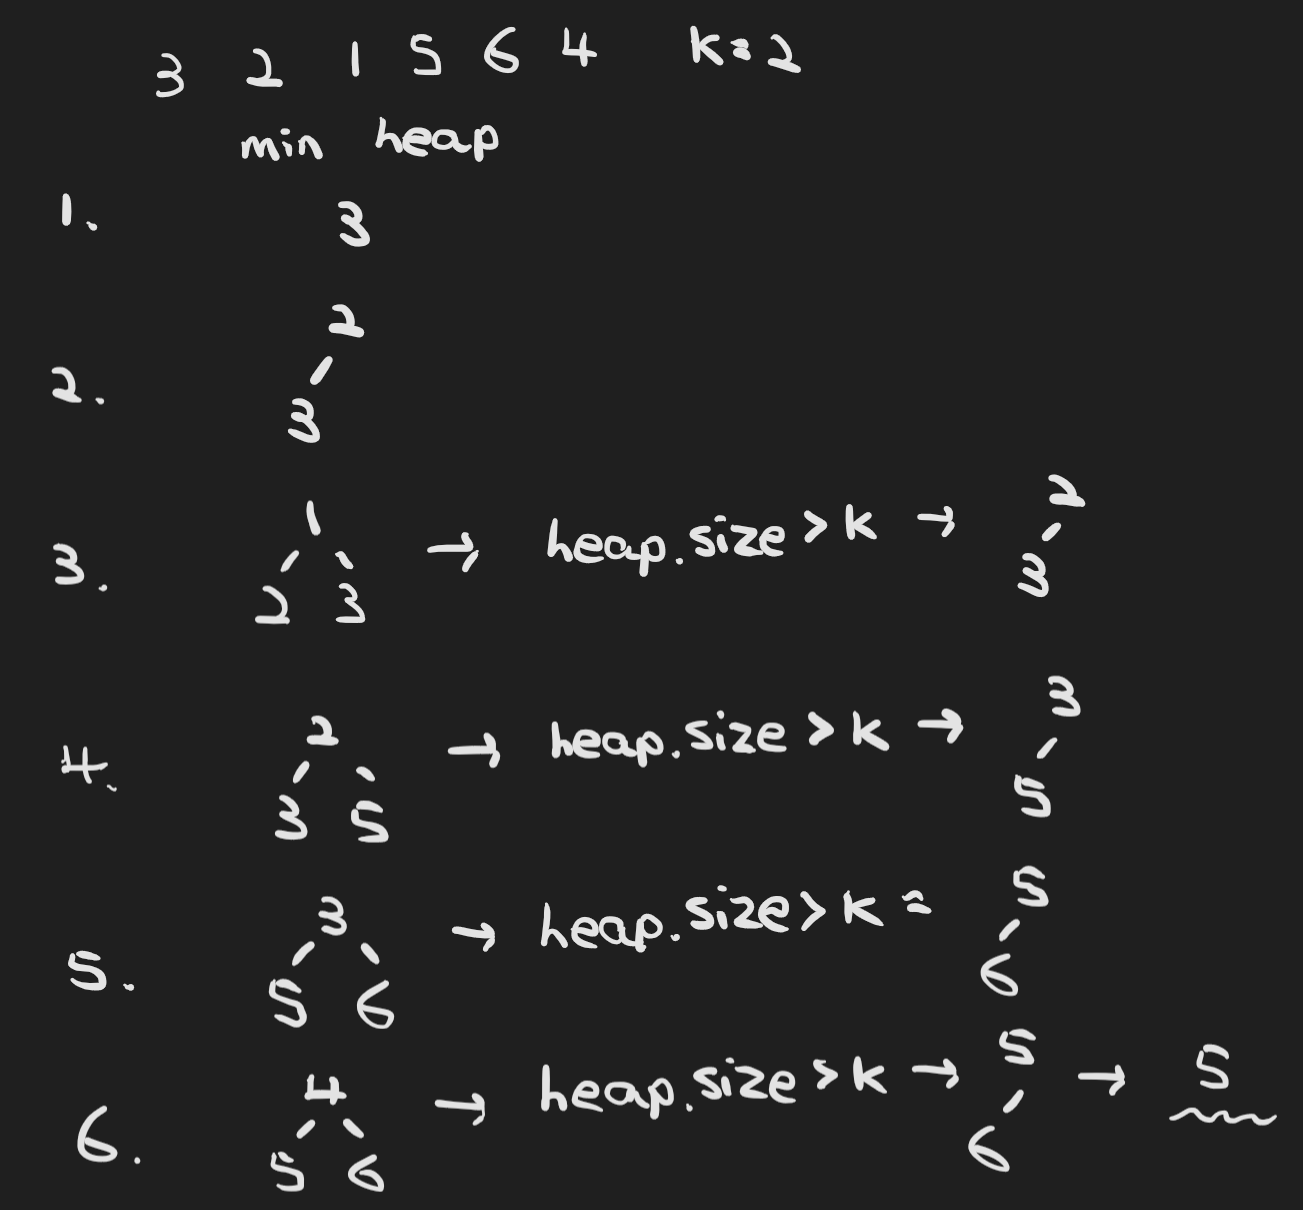 3 2 1 5 6 4 k=2
min heap
1. 3
2
2.
3
1
3. → heap.size > k → 2
3
2 3
3
4. 2 → heap.size > k →
3 5 5
3 → heap.size > k = 5
5.
5 6 6
4 → heap.size > k → 5 → 5
6.
5 6 6